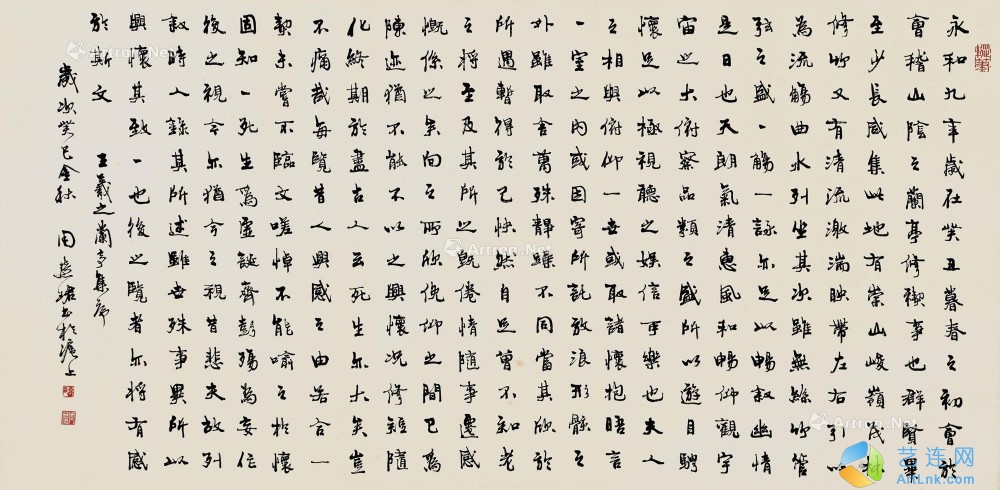 永和九年歲在癸丑暮春之初會於
會稽山陰之蘭亭修禊事也群賢畢
至少長咸集此地有崇山峻嶺茂林
修竹又有清流激湍映帶左右引以
為流觴曲水列坐其次雖無絲竹管
弦之盛一觴一詠亦足以暢敘幽情
是日也天朗氣清惠風和暢仰觀宇
宙之大俯察品類之盛所以遊目騁
懷足以極視聽之娛信可樂也夫人
之相與俯仰一世或取諸懷抱晤言
一室之內或因寄所託放浪形骸之
外雖取舍萬殊靜躁不同當其欣於
所遇暫得於己快然自足曾不知老
之將至及其所之既倦情隨事遷感
慨係之矣向之所欣俛仰之間已為
陳迹猶不能不以之興懷況修短隨
化終期於盡古人云死生亦大矣豈
不痛哉每覽昔人興感之由若合一
契未嘗不臨文嗟悼不能喻之於懷
固知一死生為虛誕齊彭殤為妄作
後之視今亦猶今之視昔悲夫故列
敘時人錄其所述雖世殊事異所以
興懷其致一也後之覽者亦將有感
於斯文 王羲之蘭亭集序
歲次癸巳金秋 周 書於滬上
Artron.Net
艺连网
ArtLnk.com